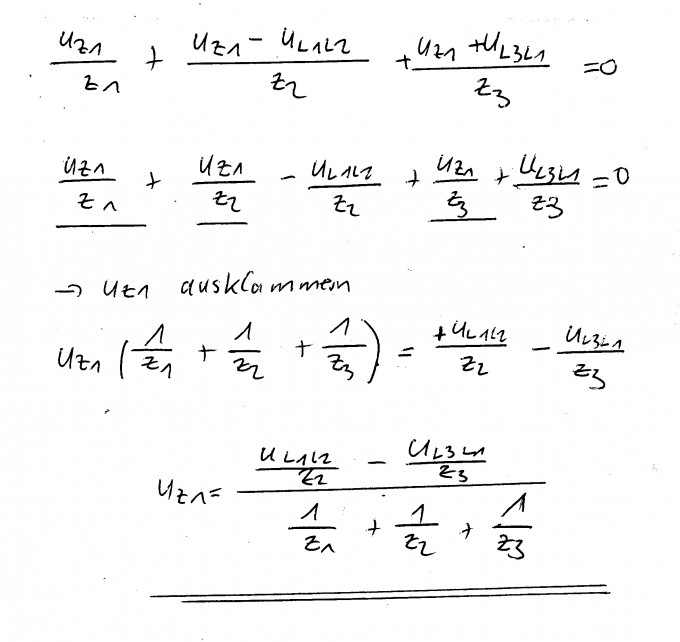 U_Z1/Z1 + (U_Z1 - U_L1L2)/Z2 + (U_Z1 + U_L3L1)/Z3 = 0
U_Z1/Z1 + U_Z1/Z2 - U_L1L2/Z2 + U_Z1/Z3 + U_L3L1/Z3 = 0
→ U_Z1 ausklammern
U_Z1 (1/Z1 + 1/Z2 + 1/Z3) = +U_L1L2/Z2 - U_L3L1/Z3
U_Z1 = (U_L1L2/Z2 - U_L3L1/Z3)/(1/Z1 + 1/Z2 + 1/Z3)